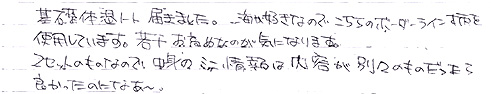 基礎体温ノート届きました。海が好きなので、こちらのボーダーライン柄を
使用しています。若干お高めなのが気になります。
2セットのものなので、中身のミニ情報は内容が別々のものだったら
良かったのになあ〜。